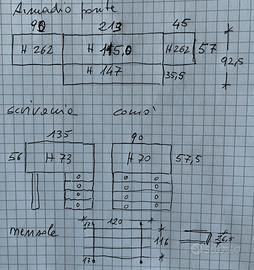 Armadio ponte
90 213 45
H 262 H 115,0 H262 57
H 147 35,5 92,5
scrivania comò
135 90
56 H 73 H 70 57,5
mensole 120
116